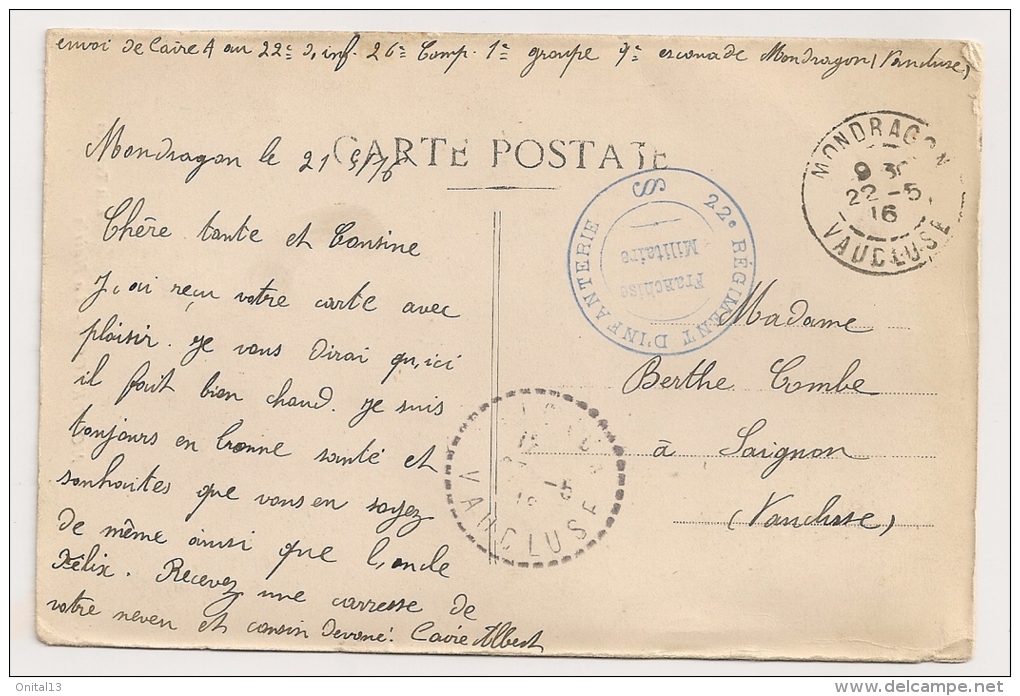 envoi de Caire A au 22e d, inf. 26e Comp. 1e groupe 9e escouade Mondragon (Vaucluse)
CARTE POSTALE
Mondragon le 21/5/16
Chère tante et Cousine
J,ai reçu votre carte avec
plaisir. Je vous dirai qu,ici
il fait bien chaud. Je suis
toujours en bonne santé et
souhaites que vous en soyez
de même ainsi que l,oncle
Félix. Recevez une carresse de
votre neveu et cousin devoué. Caire Albert
MONDRAGON
9 30
22 - 5
16
VAUCLUSE
22e RÉGIMENT D'INFANTERIE
Franchise
Militaire
Madame
Berthe Combe
à Saignon
(Vaucluse)
VAUCLUSE
Onital13
delcampe.net